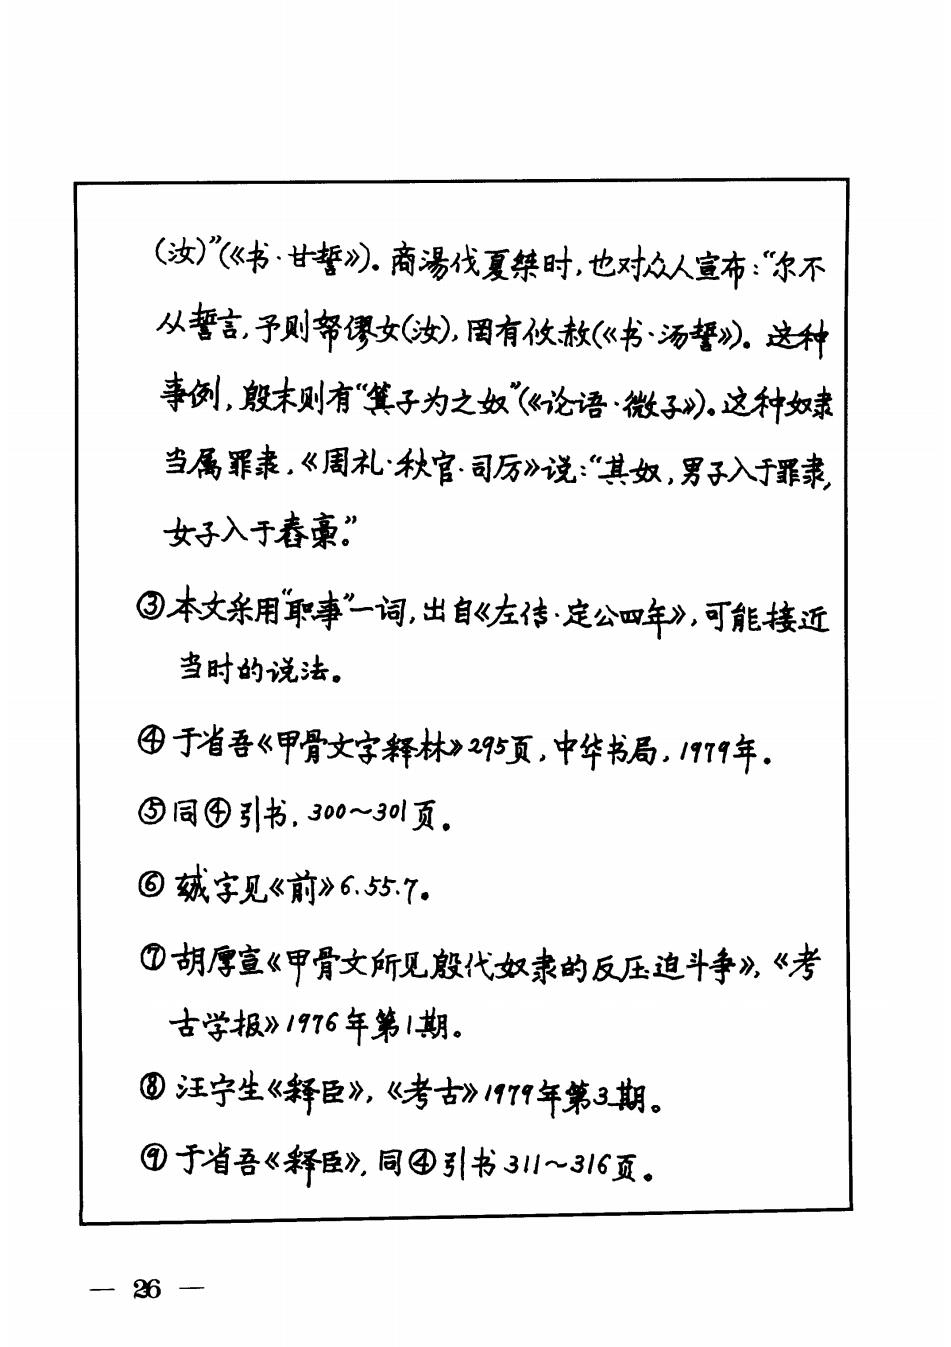 (汝)”(《书·甘誓》)。商湯伐夏桀时,也对众人宣布:“尔不
从誓言,予则帑僇女(汝),罔有攸赦(《书·汤誓》)。这种
事例,殷末则有“箕子为之奴”(《论语·微子》)。这种奴隶
当属罪隶,《周礼·秋官·司厉》说:“其奴,男子入于罪隶,
女子入于舂稾。”
③本文采用“职事”一词,出自《左传·定公四年》,可能接近
当时的说法。
④于省吾《甲骨文字释林》295页,中华书局,1979年.
⑤同④引书,300~301页.
⑥字见《前》6.55.7。
⑦胡厚宣《甲骨文所见殷代奴隶的反压迫斗争》,《考
古学报》1976年第1期。
⑧汪宁生《释臣》,《考古》1979年第3期。
⑨于省吾《释臣》,同④引书311~316页。
— 26 —